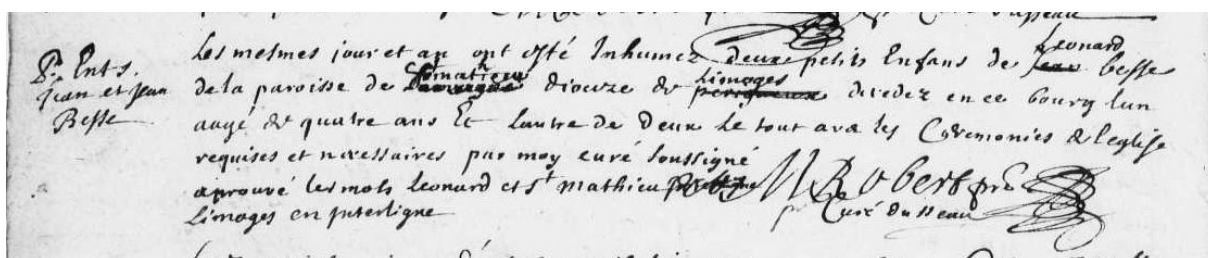 Curé Dusseau
Pr. Ents.
jean et jean
Besse
Les mesmes jour et an ont esté Inhumez deux petits Enfans de jean Leonard besse
de la paroisse de St mathieu dioceze de perigueux Limoges decedez en ce bourg lun
aagé de quatre ans Et lautre de deux Le tout avec les Ceremonies de leglise
requises et necessaires par moy curé soussigné
aprouvé les mots leonard et st mathieu
Limoges en interligne
Robert pre
Curé dusseau